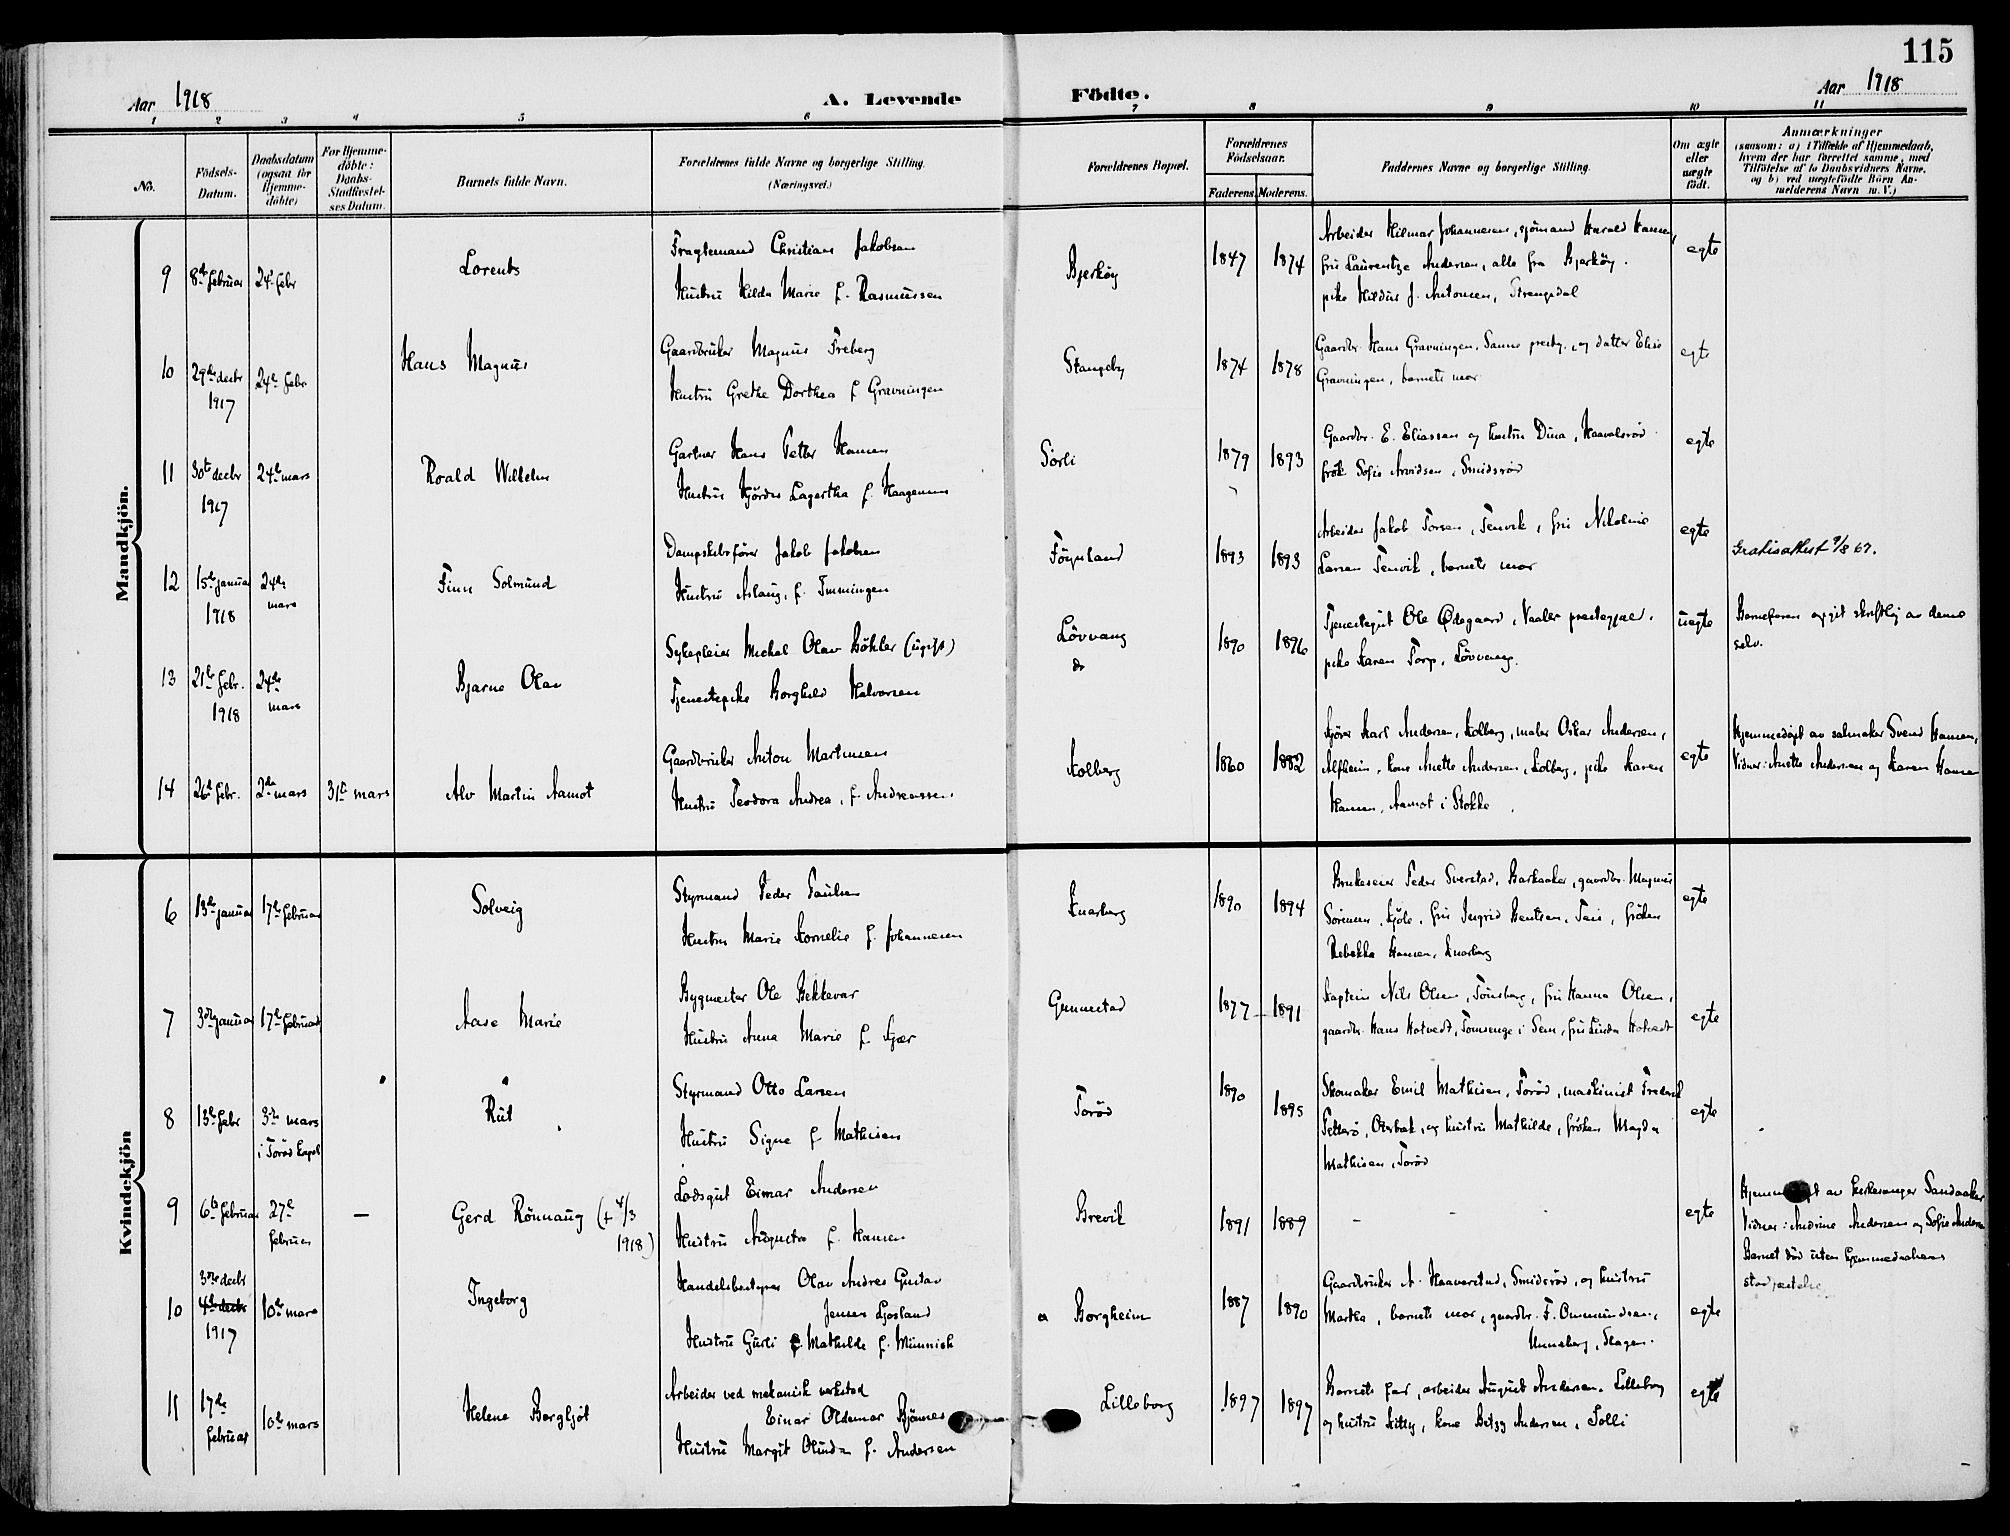 115
Aar 1918
A. Levende Födte.
Aar 1918
1 2 3 4 5 6 7 8 9 10 11
No.
Födsels-
Datum.
Daabsdatum
(ogsaa for
Hjemme-
döbte)
For Hjemme-
döbte:
Daabs-
Stadfæstel-
ses Datum.
Barnets fulde Navn.
Forældrenes fulde Navne og borgerlige Stilling.
(Næringsvei.)
Forældrenes Bopæl.
Forældrenes
Födselsaar.
Faderens. Moderens.
Faddernes Navne og borgerlige Stilling.
Om ægte
eller
uægte
födt.
Anmærkninger
(saasom: a) i Tilfælde af Hjemmedaab,
hvem der har forrettet samme, med
Tilföielse af to Daabsvidners Navne.
og b) ved uægtefödte Börn An-
melderens Navn m. V.)
Mandkjön.
9 8de februar 24de febr Lorents
Fragtemand Christian Jakobsen
Hustru Hilda Marie f. Rasmussen
Bjerköy 1847 1874
Arbeider Hilmar Johannesen, sjömand Harald Hansen,
fru Laurentze Andersen, alle fra Bjerköy.
pike Hildur J. Antonsen, Strengsdal
egte
10 29de decbr 1917 24de febr Hans Magnus
Gaardbruker Magnus Freberg
Hustru Grethe Dorthea f Gravningen
Stangeby 1874 1878
Gaardbr. Hans Gravningen, Sannes prestg., og datter Elise
Gravningen, barnets mor
egte
11 30te decbr 1917 24de mars Roald Wilhelm
Gartner Hans Petter Hansen
Hustru Hjördis Lagertha f. Haagensen
Sörli 1879 1893
Gaardbr. E. Eliassen og hustru Dina, Haavalsröd
frök Sofie Arvidsen, Smidsröd
egte
12 15de januar 1918 24de mars Finn Solmund
Dampskibsförer Jakob Jakobsen
Hustru Aslaug, f.
Föynland 1893 1893
Arbeider Jakob Torsen, Tenvik, fru Nikoline
Larsen Tenvik, barnets mor
egte
Gratisattest 9/8 67.
13 21de febr. 1918 24de mars Bjarne Olav
Sykepleier Michal Olav Böhler (ugift)
Tjenestepike Borghild Halvorsen
Lövvang
do
1890 1896
Tjenestegut Ole Ødegaard, Vaaler prestegjæl.
pike Karen Torp, Lövvang.
uegte
Barnefaren opgit skriftlig av denne
selv.
14 26de febr. 2den mars 31te mars Alv Martin Aamot
Gaardbruker Anton Martinsen
Hustru Teodora Andrea, f. Andreassen.
Kolberg 1860 1882
Kjörer Karl Andersen, Kolberg, maler Oskar Andersen,
Alfheim, kone Anette Andersen, Kolberg, pike Karen
Hansen, Aamot i Stokke.
egte
Hjemmedöpt av salmaker Svend Hansen,
Vidner: Anette Andersen og Karen Hansen
Kvindekjön
6 13de januar 17de februar Solveig
Styrmand Peder Paulsen
Hustru Marie Kornelie f. Johannesen
Knarberg 1890 1894
Brukseier Peder Sverstad, Barkaaker, gaardbr. Magnus
Sörensen, Kjöle, fru Ingrid Bentsen, Teie, fröken
Rebekka Hansen, Knarberg
egte
7 3die januar 17de februar Aase Marie
Bygmester Ole Bekkevar
Hustru Anna Marie f. Kjær
Gunnestad 1877 1891
Kaptein Nils Olsen, Tönsberg, fru Hanna Olsen,
gaardbr. Hans Hotvedt, Tomsenge i Sem, fru Linda Hotvedt
egte
8 13de febr 3die mars
i Torød kapel
Rut
Styrmand Otto Larsen
Hustru Signe f Mathisen
Torød 1890 1895
Skomaker Emil Mathisen, Torød, maskinist Fredrik
Petterø, Oterbæk, og hustru Mathilde, fröken Magda
Mathisen, Torød
egte
9 6te februar 27de februar — Gerd Rönnaug († 4/3 1918)
Lodsgut Einar Andersen
Hustru Augusta f. Hansen
Brevik 1891 1889 - - -
egte
av kirkesanger Sandaaker
Vidner: Andrine Andersen og Sofie Andersen
Barnet död uten hjemmedaabens
stadfæstelse
10 3die decbr 4de decbr 1917 10de mars Ingeborg
Handelsbestyrer Olav Andres Gustav
Jensen Ljosland
Hustru Gurli Mathilde f. Münnich
Borgheim 1887 1890
Gaardbruker A. Haaverstad, Smidsröd, og hustru
Martha, barnets mor, gaardbr. F. Ommundsen,
Unneberg, Slagen.
egte
11 17de februar 10de mars Helene Bergljot
Arbeider ved mekanisk verksted
Einar Oldemar Bjönnes
Hustru Margit Olinda f. Andersen
Lilleborg 1897 1897
Barnets far, arbeider August Andersen, Lilleborg
og hustru Kitty, kone Betzy Andersen, Solli
egte